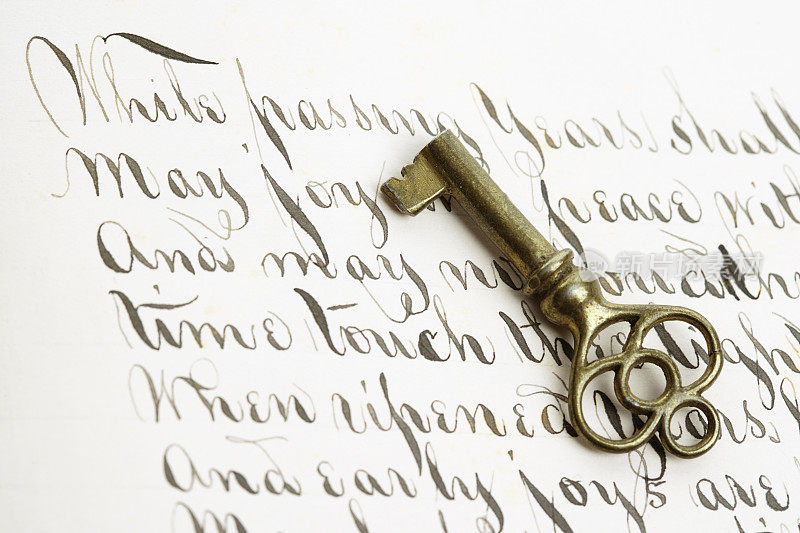 While passing Years shall
May joy peace with
And may no
time touch the
When ripened
And early joys are